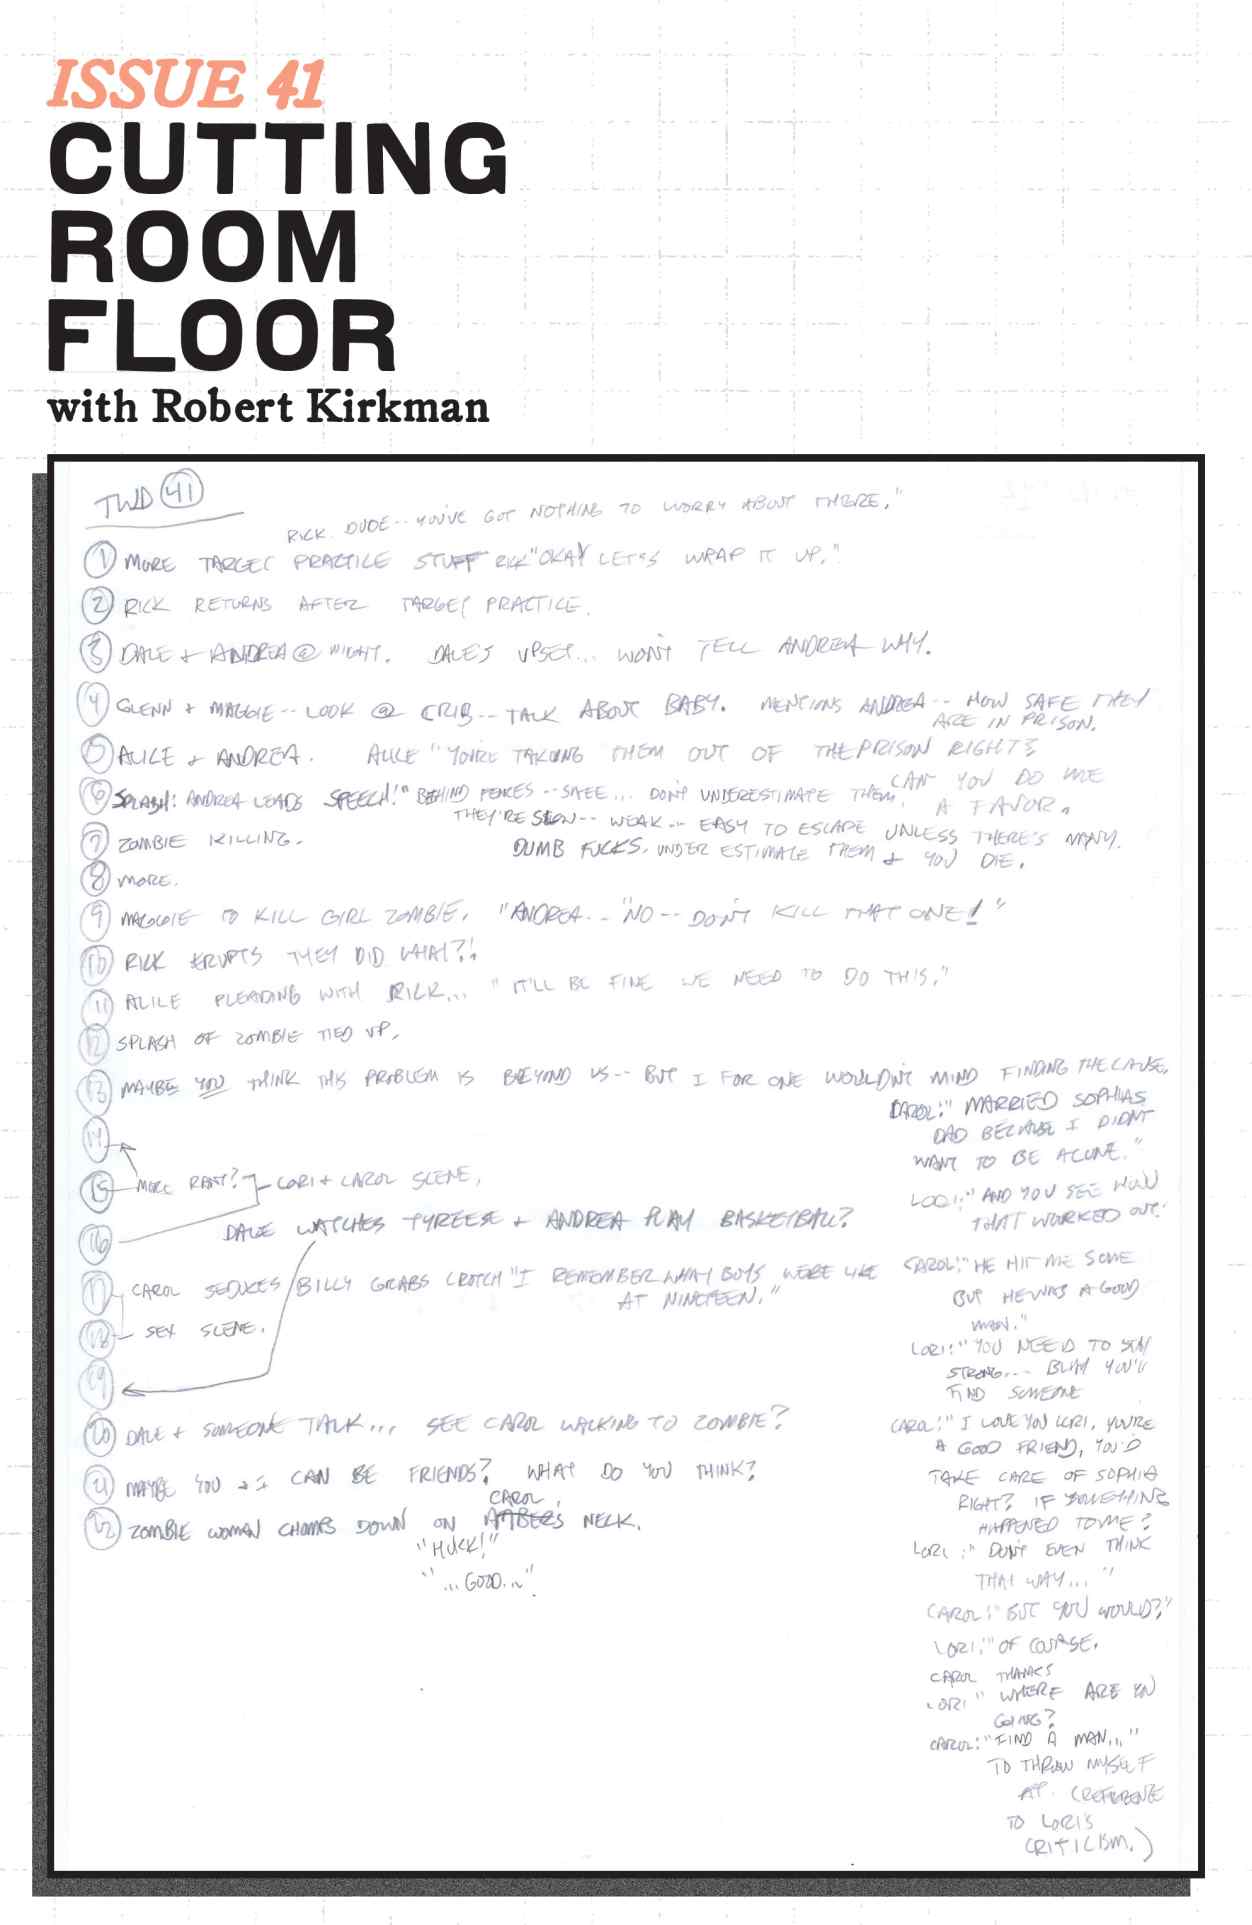 ISSUE 41
CUTTING
ROOM
FLOOR
with Robert Kirkman
TWD 41
RICK. DUDE-- YOU'VE GOT NOTHING TO WORRY ABOUT THERE."
1 MORE TARGET PRACTICE STUFF RICK "OKAY LET'S WRAP IT UP."
2 RICK RETURNS AFTER TARGET PRACTICE.
3 DALE + ANDREA @ NIGHT. DALE'S UPSET... WON'T TELL ANDREA WHY.
4 GLENN + MAGGIE-- LOOK @ CRIB-- TALK ABOUT BABY. MENTIONS ANDREA-- HOW SAFE THEY
ARE IN PRISON.
5 ALICE + ANDREA. ALICE "YOU'RE TAKING THEM OUT OF THE PRISON RIGHT?
CAN YOU DO ME
A FAVOR.
6 SPLASH: ANDREA LEADS SPEECH!" BEHIND FENCES-- SAFE... DON'T UNDERESTIMATE THEM.
THEY'RE SLOW-- WEAK-- EASY TO ESCAPE UNLESS THERE'S MANY.
DUMB FUCKS. UNDER ESTIMATE THEM + YOU DIE.
7 ZOMBIE KILLING.
8 MORE.
9 MAGGIE TO KILL GIRL ZOMBIE. "ANDREA.. "NO-- DON'T KILL THAT ONE!"
10 RICK ERUPTS THEY DID WHAT?!
11 ALICE PLEADING WITH RICK... "IT'LL BE FINE WE NEED TO DO THIS."
12 SPLASH OF ZOMBIE TIED UP.
13 MAYBE YOU THINK THIS PROBLEM IS BEYOND US-- BUT I FOR ONE WOULDN'T MIND FINDING THE CAUSE.
14
15 MORE RANT? LORI + CAROL SCENE.
16 DALE WATCHES TYREESE + ANDREA PLAY BASKETBALL?
17 CAROL SEDUCES BILLY GRABS CROTCH "I REMEMBER WHAT BOYS WERE LIKE
AT NINETEEN."
18 SEX SCENE.
19
20 DALE + SOMEONE TALK... SEE CAROL WALKING TO ZOMBIE?
21 MAYBE YOU + I CAN BE FRIENDS? WHAT DO YOU THINK?
CAROL
22 ZOMBIE WOMAN CHOMPS DOWN ON NECK.
"HUCK!"
"...GOOD..."
CAROL: "MARRIED SOPHIAS
DAD BECAUSE I DIDN'T
WANT TO BE ALONE."
LORI: "AND YOU SEE HOW
THAT WORKED OUT."
CAROL: "HE HIT ME SOME
BUT HE WAS A GOOD
MAN."
LORI: "YOU NEED TO STAY
STRONG... BLAH YOU'LL
FIND SOMEONE
CAROL: "I LOVE YOU LORI, YOU'RE
A GOOD FRIEND, YOU'D
TAKE CARE OF SOPHIA
RIGHT? IF SOMETHING
HAPPENED TO ME?
LORI: "DON'T EVEN THINK
THAT WAY..."
CAROL: "BUT YOU WOULD?"
LORI: "OF COURSE.
CAROL THANKS
LORI "WHERE ARE YOU
GOING?
CAROL: "FIND A MAN..."
TO THROW MYSELF
AT. (REFERENCE
TO LORI'S
CRITICISM.)